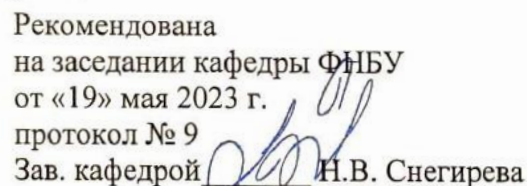 Рекомендована
на заседании кафедры ФНБУ
от «19» мая 2023 г.
протокол № 9
Зав. кафедрой Н.В. Снегирева